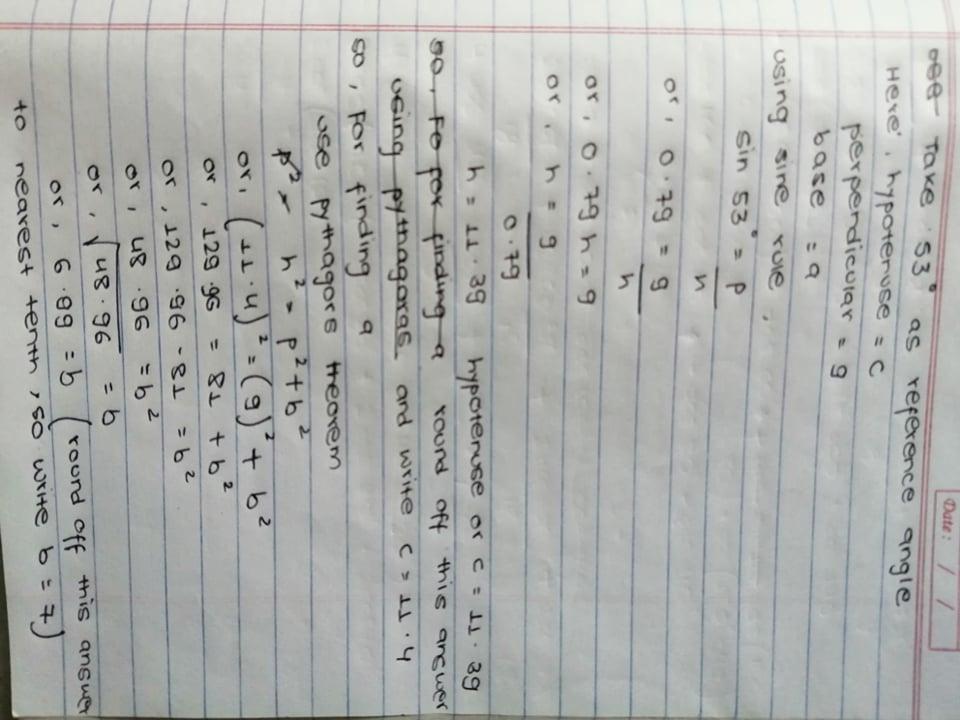 Date: / /
Take 53° as reference angle
Here, hypotenuse = c
perpendicular = 9
base = a
using sine rule,
sin 53° = p/h
or, 0.79 = 9/h
or, 0.79 h = 9
or, h = 9/0.79
h = 11.39 hypotenuse or c = 11.39
so, Fo for finding a round off this answer
using pythagoras and write c = 11.4
so, for finding a
use pythagors theorem
p² = h² = p² + b²
or, (11.4)² = (9)² + b²
or, 129.96 = 81 + b²
or, 129.96 - 81 = b²
or, 48.96 = b²
or, √48.96 = b
or, 6.99 = b (round off this answer
to nearest tenth, so write b = 7)